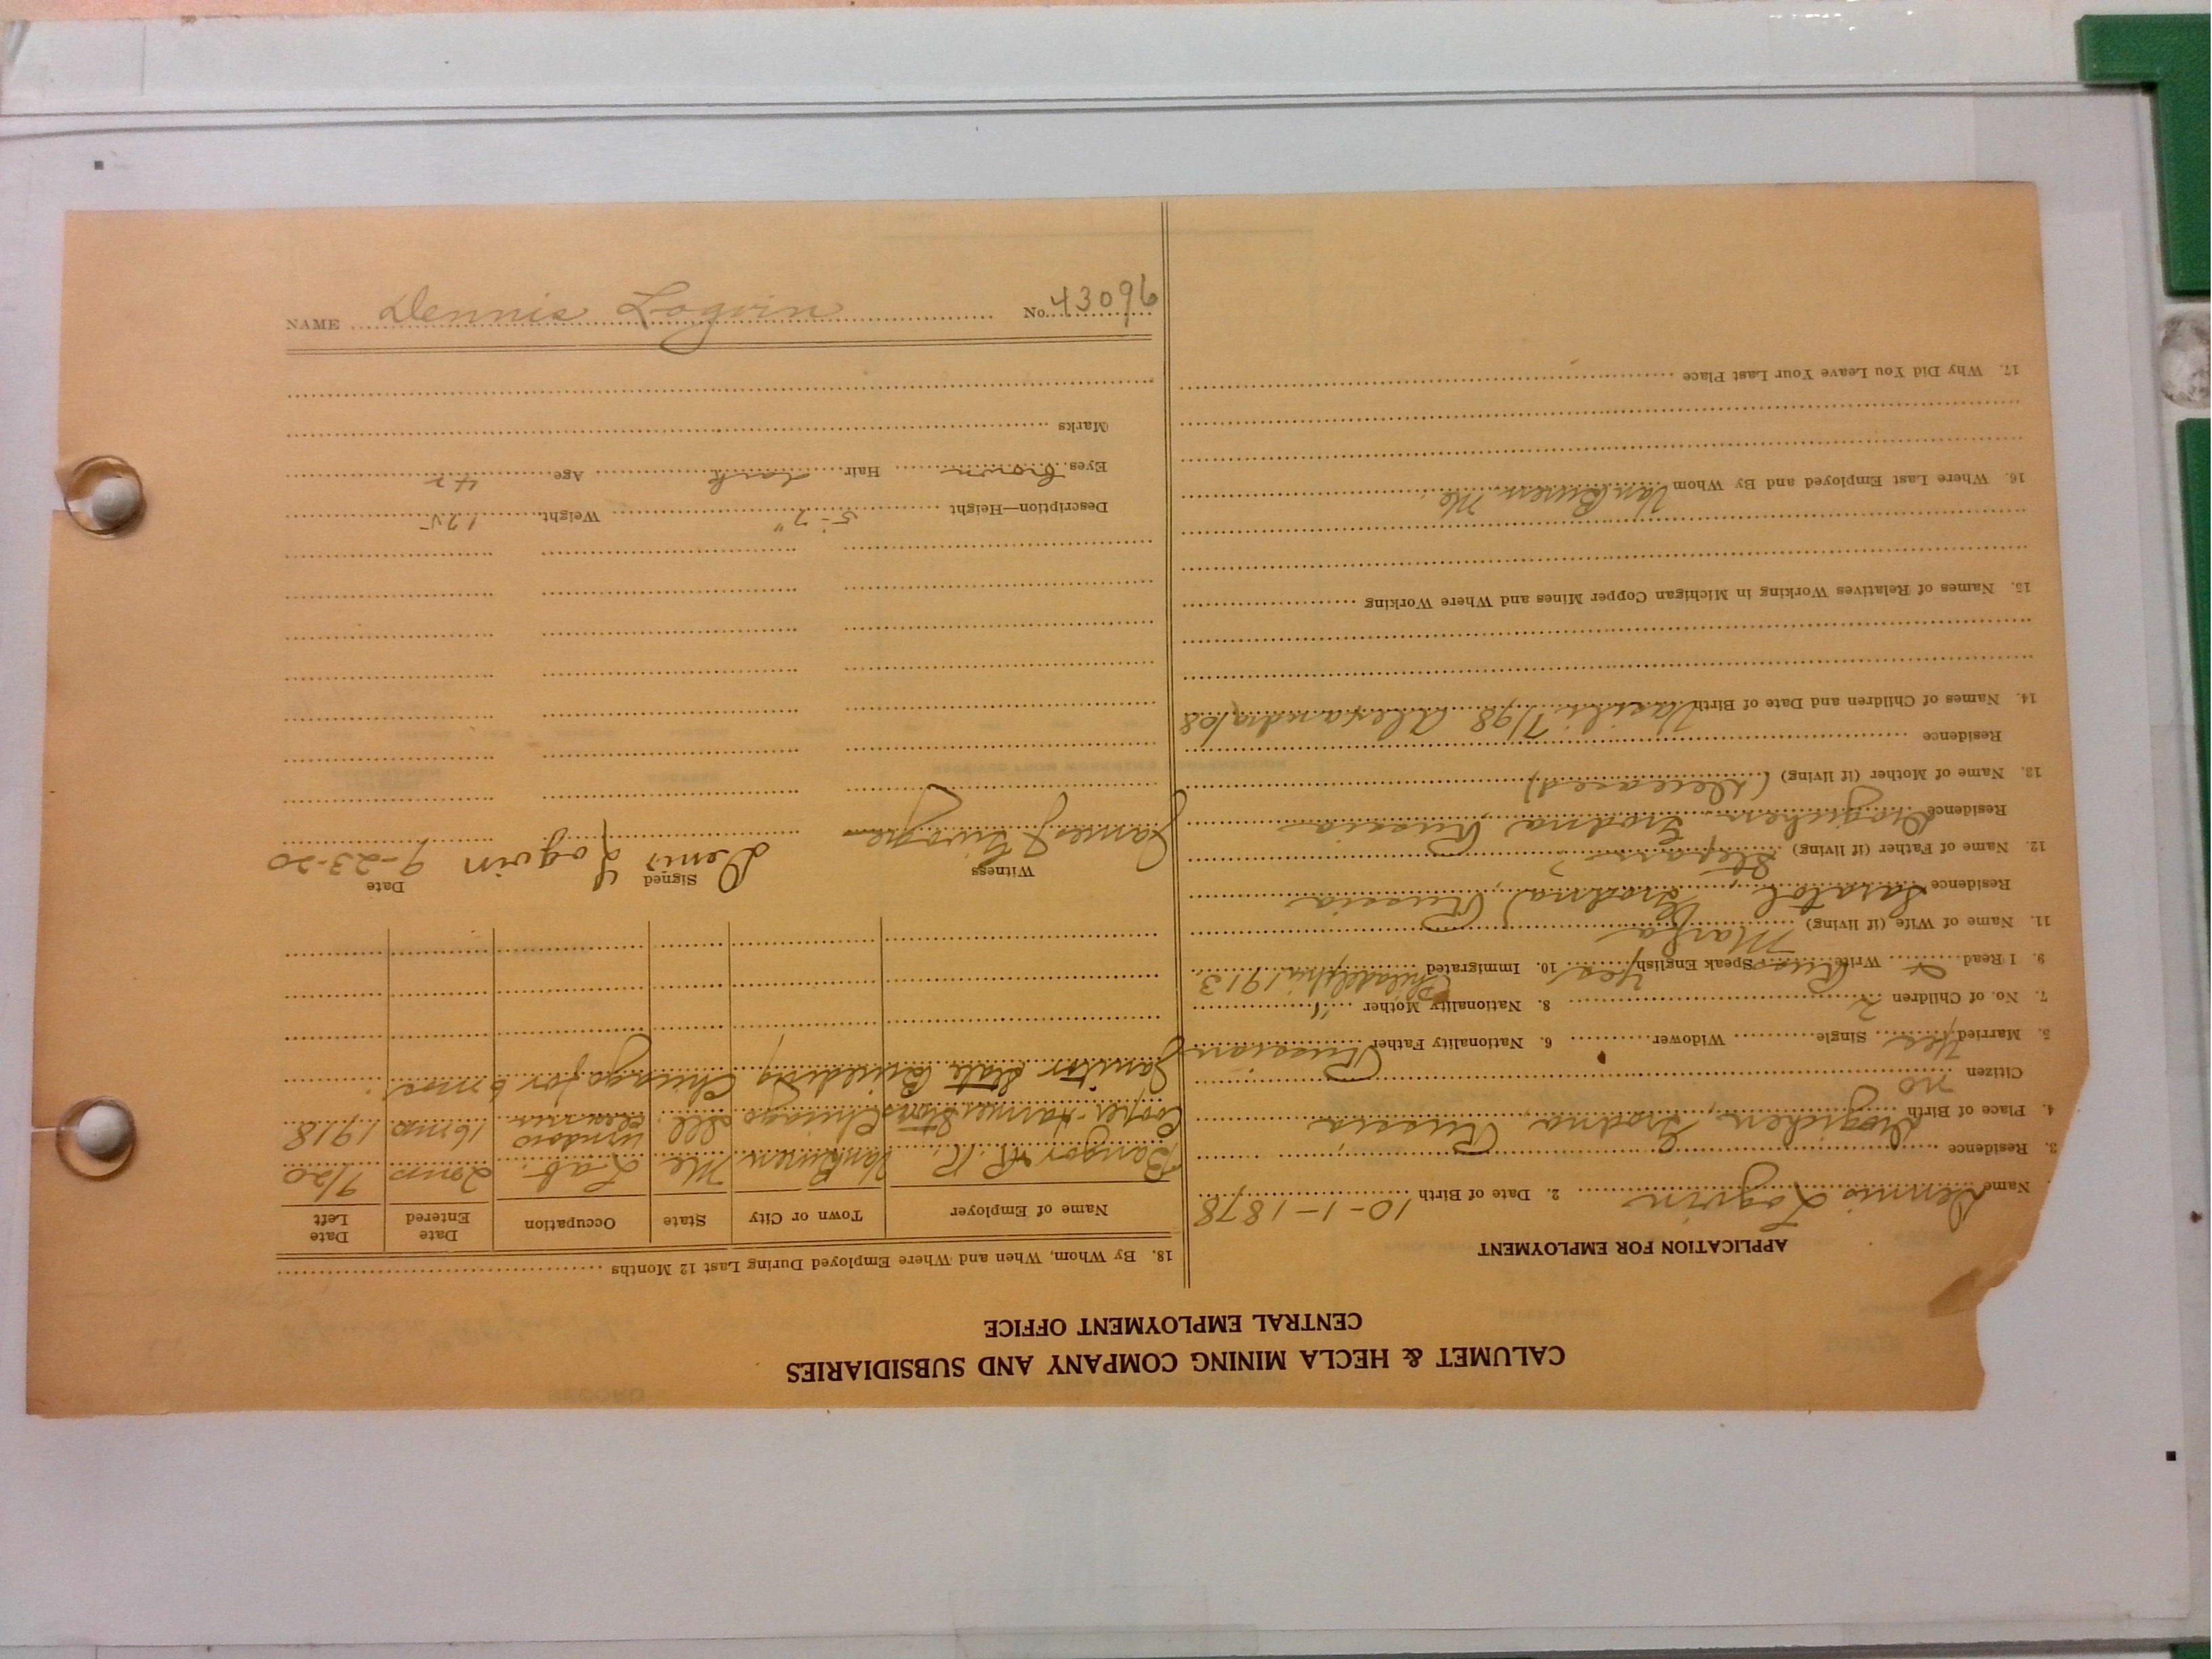 CALUMET & HECLA MINING COMPANY AND SUBSIDIARIES
CENTRAL EMPLOYMENT OFFICE
APPLICATION FOR EMPLOYMENT
Name Dennis Logvin 2. Date of Birth 10-1-1878
3. Residence
4. Place of Birth Grodna, Russia
Citizen no
5. Married yes Single Widower 6. Nationality Father Russian
7. No. of Children 2 8. Nationality Mother "
9. I Read Write Speak English yes 10. Immigrated Philadelphia 1913
11. Name of Wife (if living) Marfa
Residence Grodna, Russia
12. Name of Father (if living) Stepan
Residence Grodna, Russia
13. Name of Mother (if living) (Deceased)
Residence
14. Names of Children and Date of Birth Vasili 7/98 Alexandra/08
15. Names of Relatives Working in Michigan Copper Mines and Where Working
16. Where Last Employed and By Whom Van Buren Me.
17. Why Did You Leave Your Last Place
18. By Whom, When and Where Employed During Last 12 Months
Name of Employer Town or City State Occupation Date Entered Date Left
Bangor R.R. Van Buren Me Lab. 2 mo 9/20
Cooper Chicago Ill. window cleaner 16 mo 1918
Janitor State Building Chicago for 6 mos.
Witness Signed Date
James Denis Logvin 9-23-20
Description—Height 5-7" Weight 125
Eyes brown Hair dark Age 42
Marks
NAME Dennis Logvin No. 43096